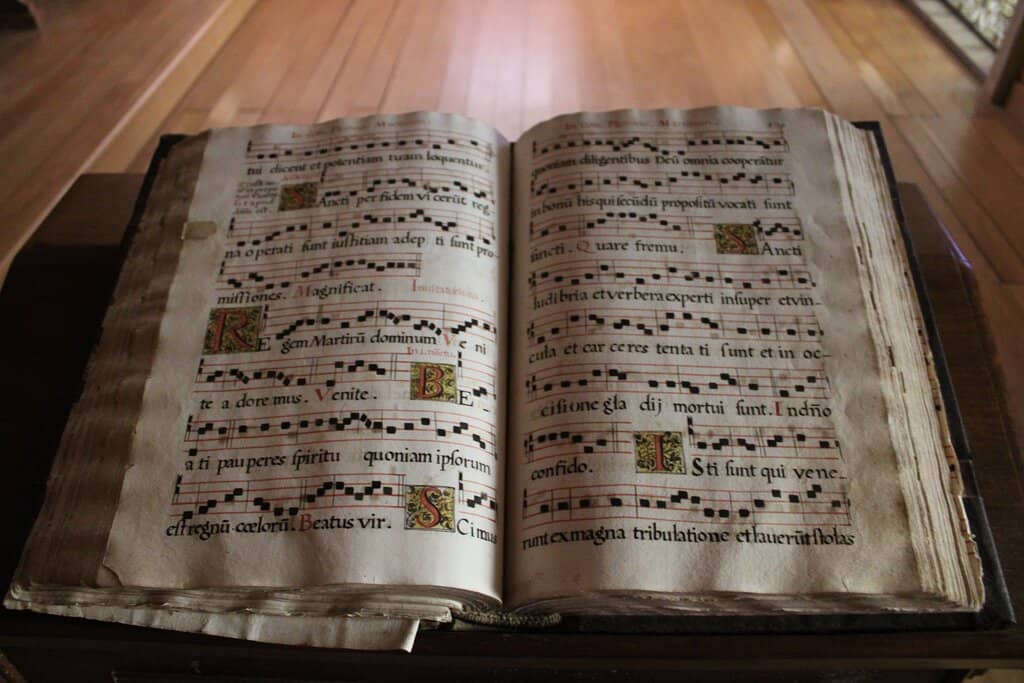 tui dicent et potentiam tuam loquentur.
SAncti per fidem vicerūt reg-
na operati sunt iustitiam adepti sunt pro-
missiones. Magnificat.
REgem Martirū dominum Veni
te adoremus. Venite. BE-
ati pauperes spiritu quoniam ipsorum
est regnū cœlorū. Beatus vir. SCimus
quoniam diligentibus Deū omnia cooperātur
in bonū his qui secūdū propositū vocati sunt
sancti. Quare fremu. SAncti
ludibria et verbera experti insuper et vin-
cula et carceres tentati sunt et in oc-
cisione gladij mortui sunt. In dño
confido. ISti sunt qui vene-
runt ex magna tribulatione et lauerūt stolas